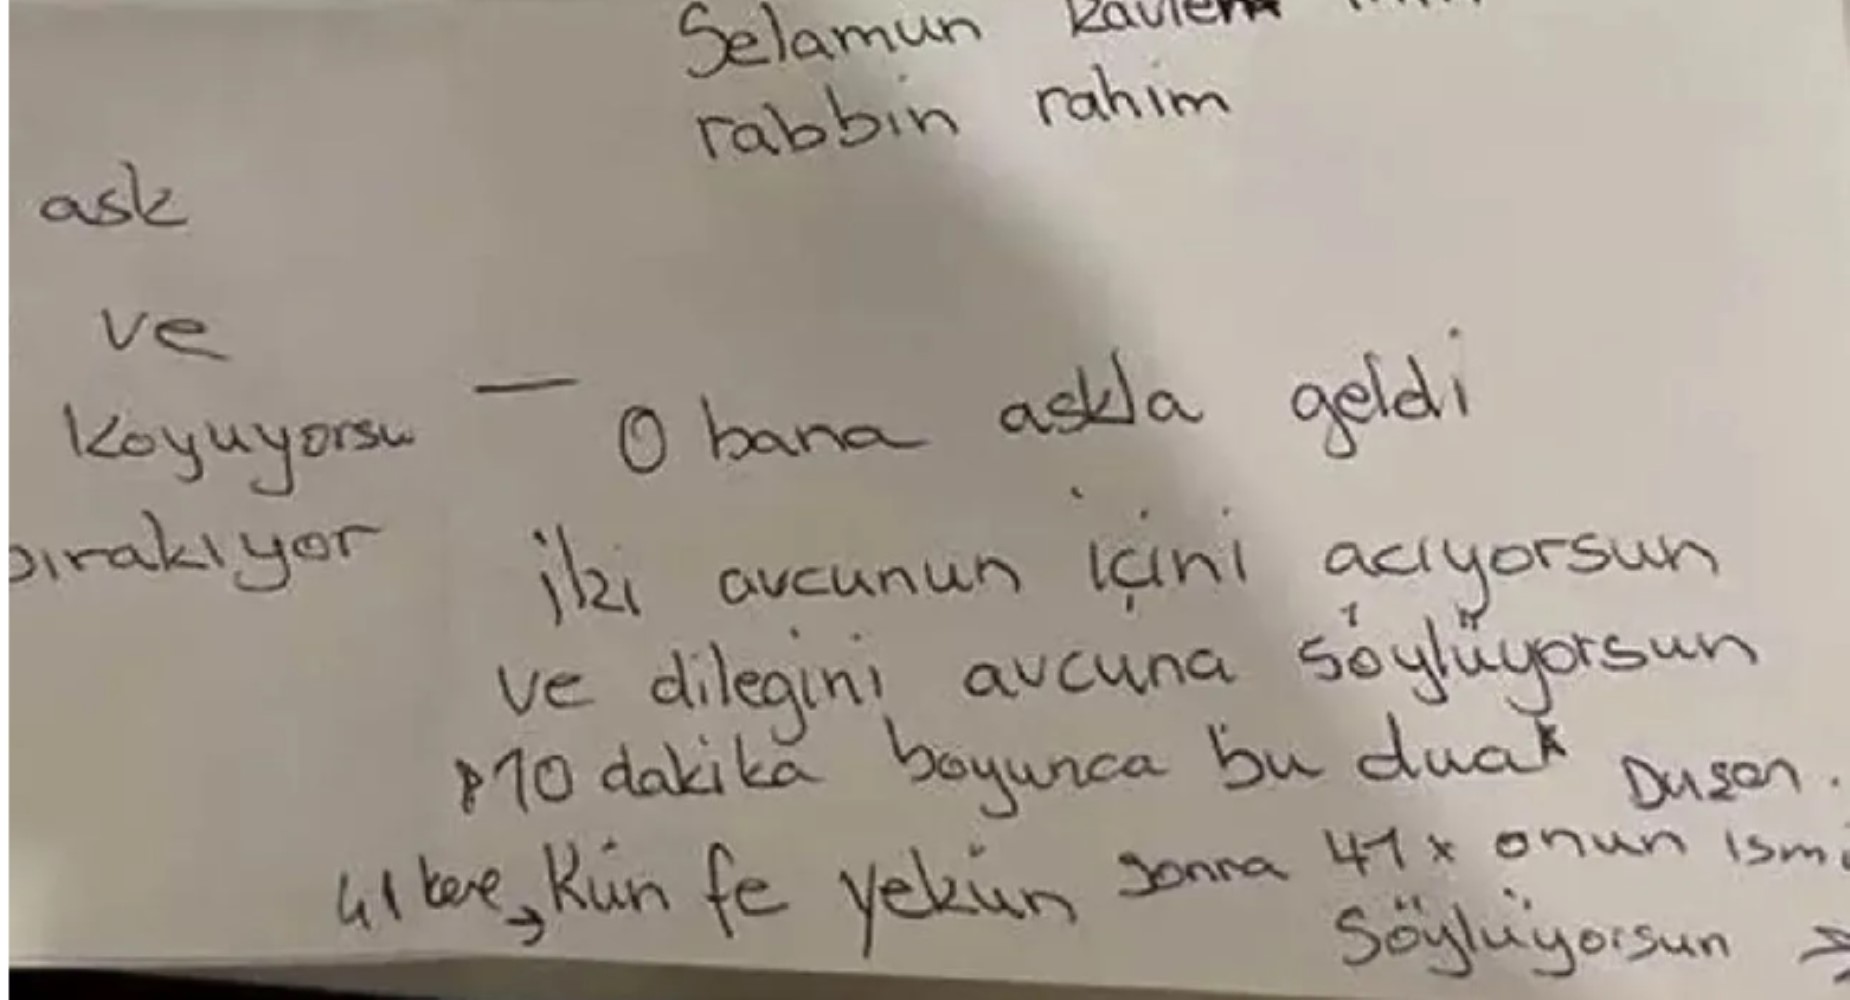 Selamun kavlem
rabbin rahim
ask
ve
koyuyorsu
bırakıyor
— O bana askla geldi
iki avcunun içini acıyorsun
ve dilegini avcuna söylüyorsun
10 dakika boyunca bu dua
41 kere → Kün fe yekün sonra 41x onun ismi
söylüyorsun →